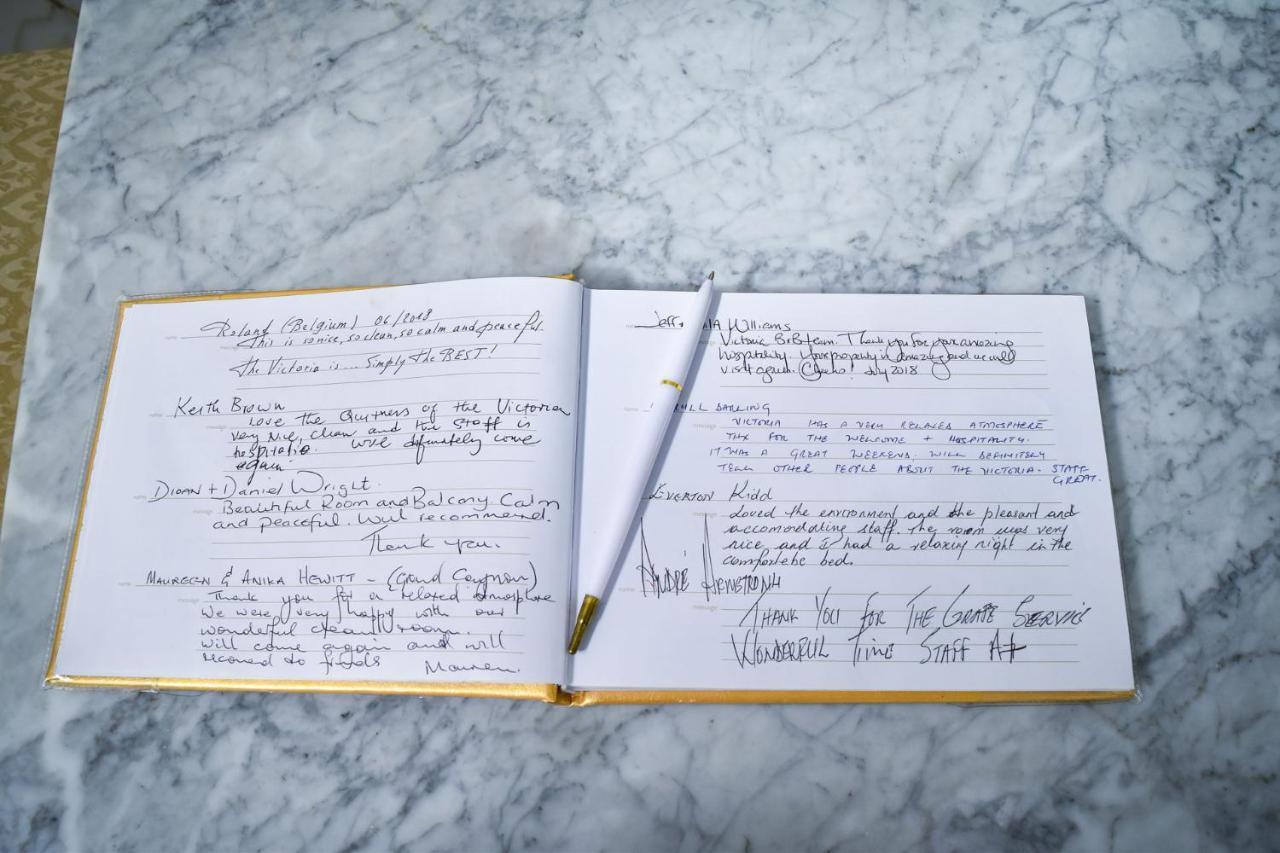 Roland (Belgium) 06/2018
This is so nice, so clean, so calm and peaceful.
The Victoria is... Simply the BEST!
Keith Brown
Love the Quitness of the Victorian
very Nice, clean, and the staff is
hospitable. Will definately come
again.
Dioan + Daniel Wright.
Beautiful Room and Balcony. Calm
and peaceful. Well recommend.
Thank you.
MAUREEN & ANIKA HEWITT - (Grand Cayman)
Thank you for a relaxed atmosphere
We were very happy with our
wonderful clean room.
will come again and will
to friends Maureen.
Jeff Williams
Victoria B&B team. Thank you for your amazing
hospitality. Your property is amazing and we will
visit again. Cheers! July 2018
DARLING
VICTORIA HAS A VERY RELAXED ATMOSPHERE
THX FOR THE WELCOME + HOSPITALITY.
IT WAS A GREAT WEEKEND. WILL DEFINITELY
TELL OTHER PEOPLE ABOUT THE VICTORIA. STAFF
GREAT.
EVERTON Kidd
Loved the environment and the pleasant and
accomodating staff. The room was very
nice and I had a relaxing night in the
bed.
ANDRÉ ARMSTRONG
THANK YOU FOR THE GRATE SERVICE
WONDERFUL TIME STAFF A+